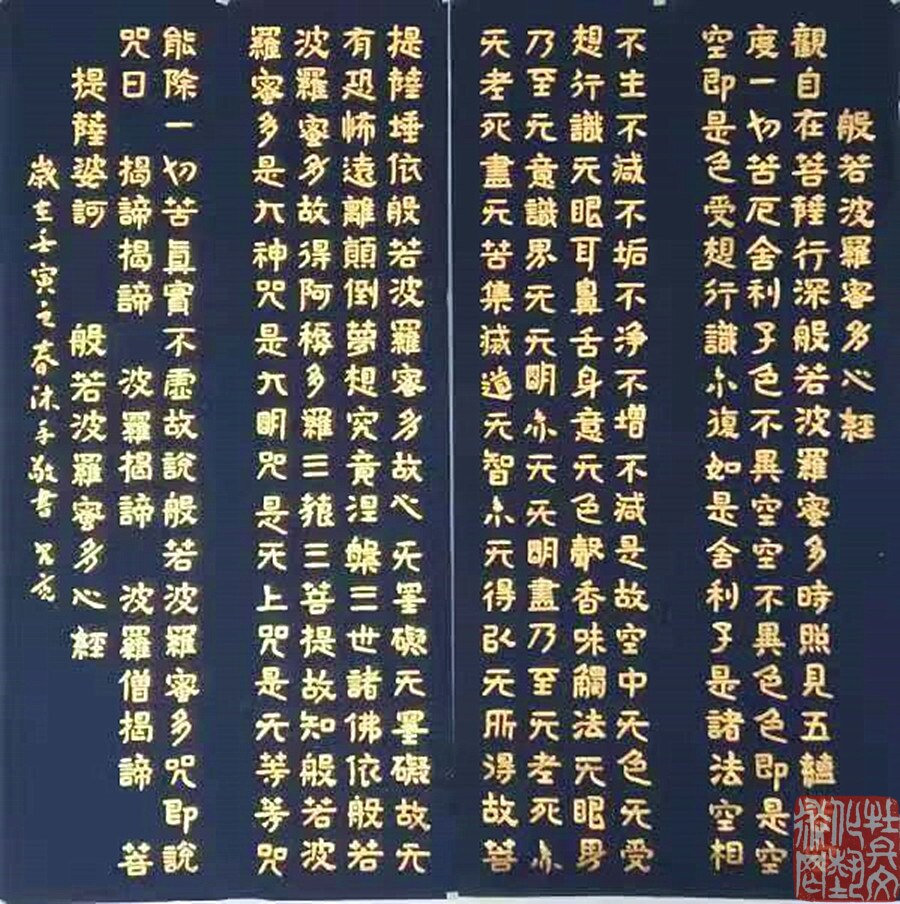 般若波羅蜜多心經
觀自在菩薩行深般若波羅蜜多時照見五蘊
度一切苦厄舍利子色不異空空不異色色即是空
空即是色受想行識亦復如是舍利子是諸法空相
不生不減不垢不净不增不減是故空中无色无受
想行識无眼耳鼻舌身意无色聲香味觸法无眼界
乃至无意識界无无明亦无无明盡乃至无老死亦
无老死盡无苦集滅道无智亦无得以无所得故菩
提薩埵依般若波羅蜜多故心无罣礙无罣礙故无
有恐怖遠離顛倒夢想究竟涅槃三世諸佛依般若
波羅蜜多故得阿耨多羅三藐三菩提故知般若波
羅蜜多是大神咒是大明咒是无上咒是无等等咒
能除一切苦真實不虛故說般若波羅蜜多咒即說
咒曰 揭諦揭諦 波羅揭諦 波羅僧揭諦 菩
提薩婆訶 般若波羅蜜多心經
歲在壬寅之春沐手敬書